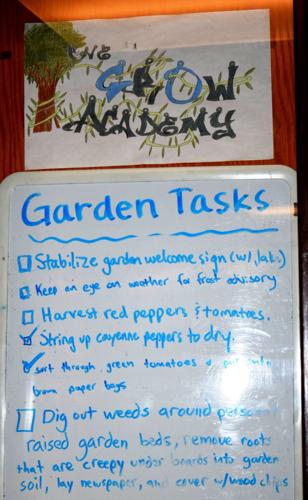 THE
GROW
ACADEMY
Garden Tasks
Stabilize garden welcome sign (w/
Keep an eye on weather for frost advisory
Harvest red peppers & tomatoes.
String up cayenne peppers to dry.
sort through green tomatoes
brown paper bags
Dig out weeds around
raised garden beds, remove roots
that are creepy under boards into garden
soil, lay newspaper, and cover w/wood chips